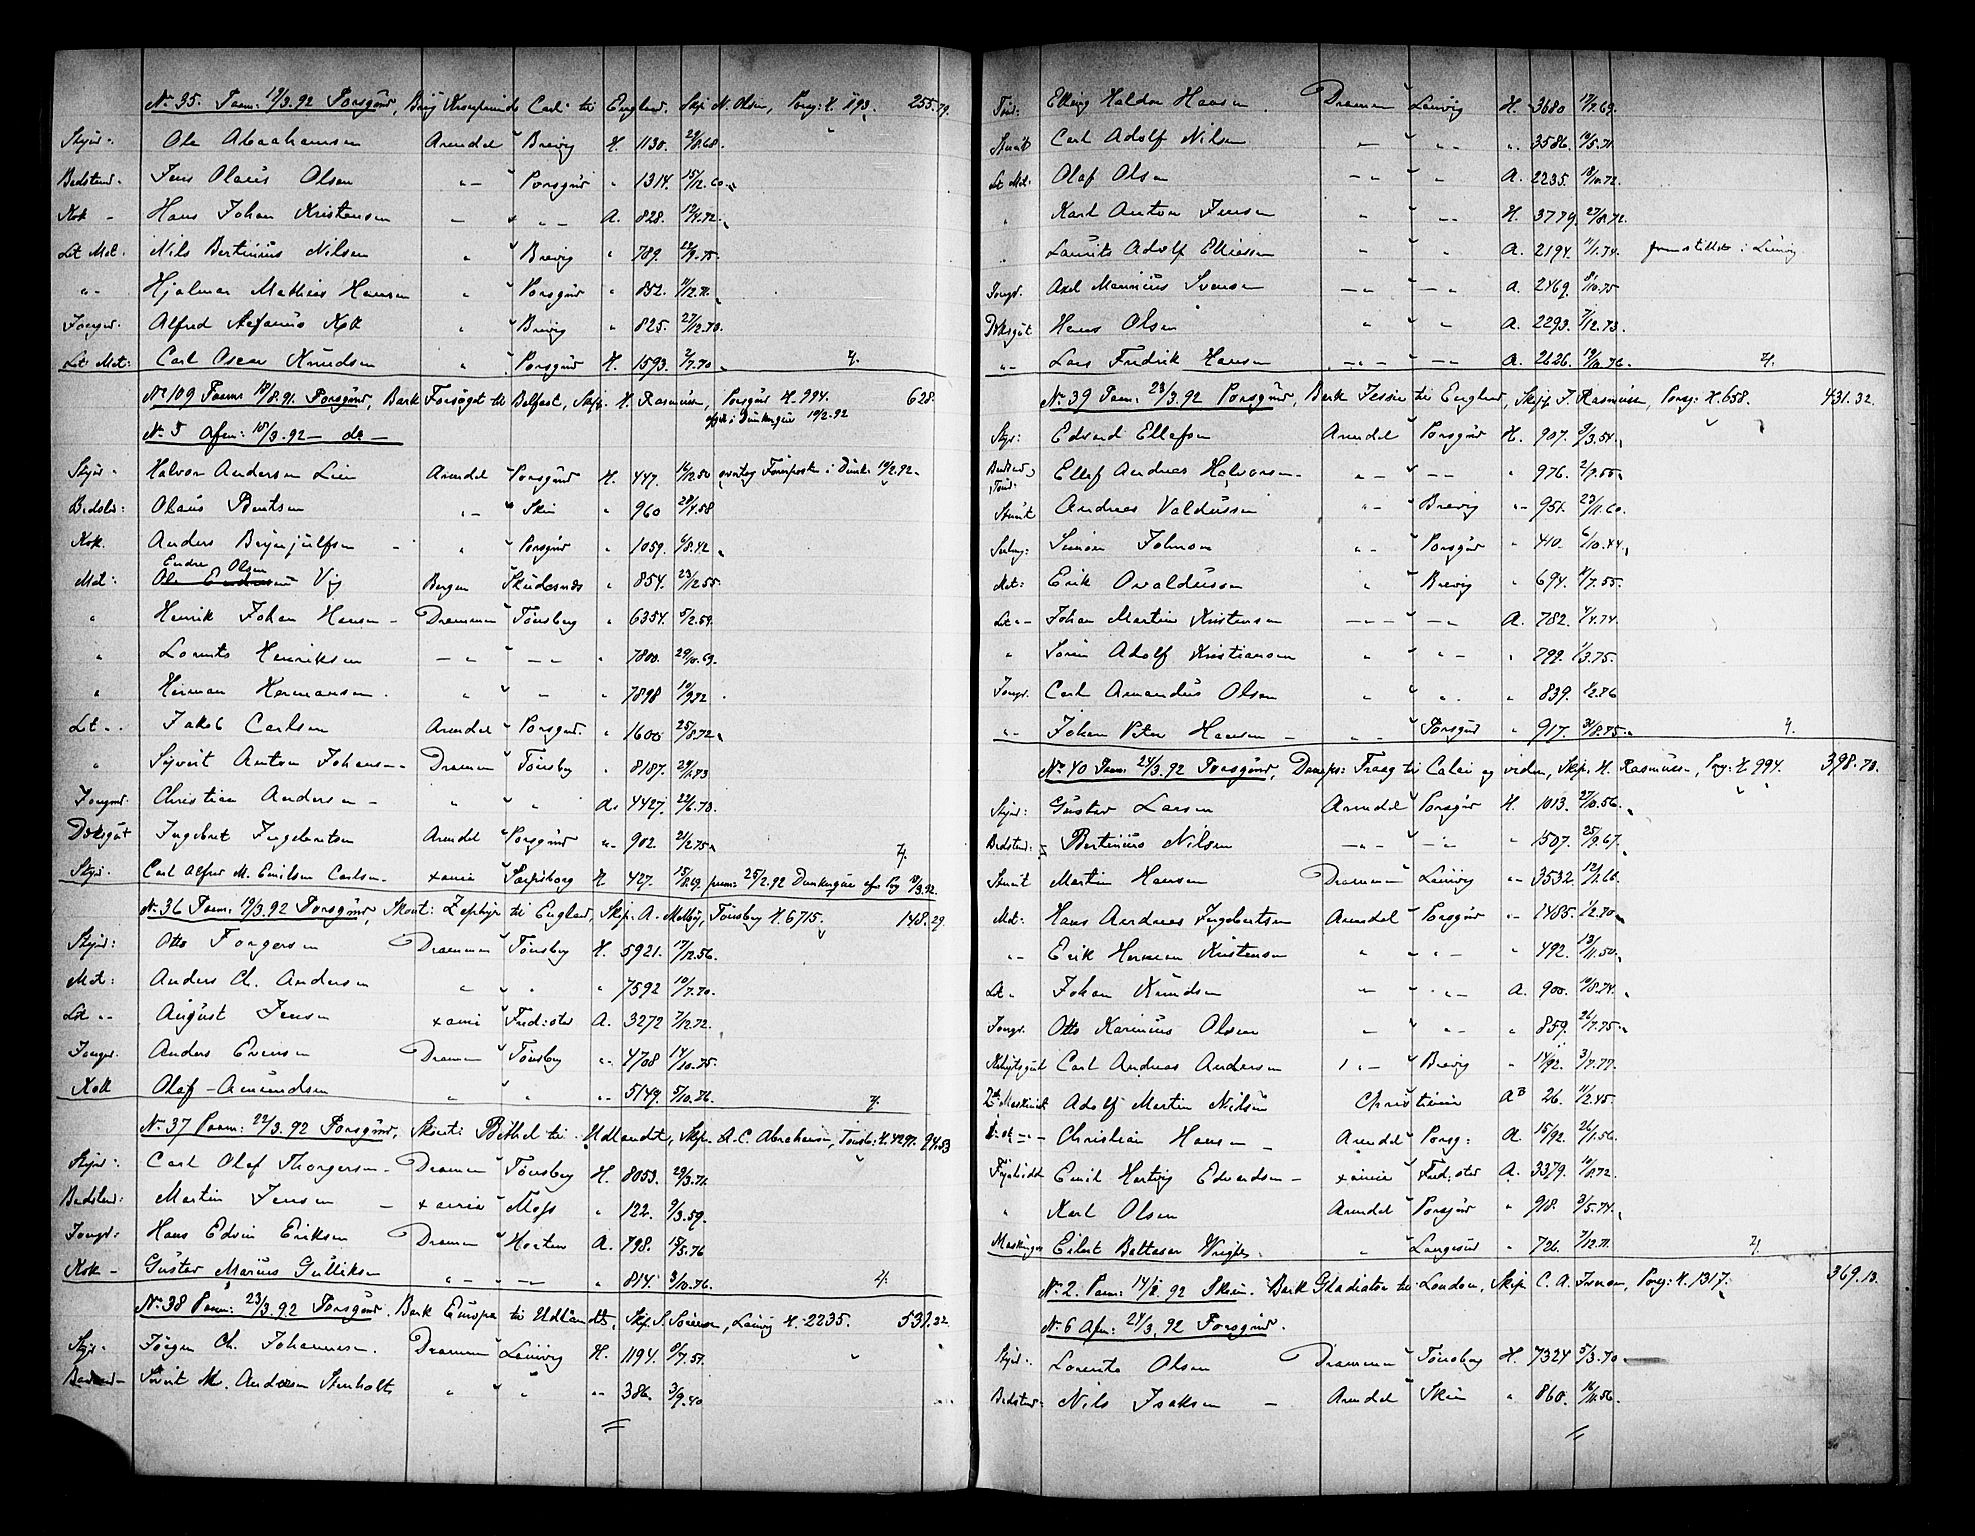 No 35. Paam: 19/3.92 Porsgrund, Brig Kronprinds Carl til England. Skip. N. Olsen, Porsg: H. 893. 255.79.
Styrm: Ole Abrahamsen Arendal Brevig H. 1130. 29/8.68.
Bedstmd. Jens Olaus Olsen Porsgrd 1314. 15/12.60.
Kok Hans Johan Kristensen A. 828. 12/4.72.
Let Mat. Nils Bertinius Nilsen Brevig 789. 22/9.75.
Hjalmar Mathias Hansen Porsgrd 852. 9/12.71.
Jungm. Alfred Stefanus Kok Brevig 825. 27/12.70.
Let Mat: Carl Oscar Knudsen Porsgrd H. 1593. 2/7.70.
No 109 Paam: 18/8.91 Porsgrund, Bark Forsøget til Belfast, Skip. H. Rasmusen, Porsgrd H. 994. 628.
No 5 Afm: 18/3.92 do
Styrm Halvor Andersen Lien Arendal Porsgrund H. 447. 14/12.50 overtog Førerposten i Dunk. 19/2.92
Bedstm: Olaus Bentsen Skien 960 28/4.58
Kok Anders Brynjulfsen Porsgrd 1059. 6/8.42
Mat: Endre Olsen Vig Bergen Skudesnæs 854. 23/12.55.
Henrik Johan Hansen Drammen Tønsberg 6354. 5/2.59.
Lorents Henriksen 7800. 29/10.69.
Herman Hermansen 7898 10/9.72
Let Jakob Carlsen Arendal Porsgrd. 1600 25/8.72
Syvert Anton Johansen Drammen Tønsberg 8187. 29/1.73
Jungmd. Christian Andersen A. 4427. 22/6.70.
Dæksgut Ingebret Ingebretsen Arendal Porsgrund 902. 21/2.75.
Styr. Carl Alfred M. Emilsen Carlsen Xania Sarpsborg H 427. 15/8.69. paam: 25/2.92 Dunkerque afm Prg 18/3.92.
No 36 Paam. 19/3.92 Porsgrund, Skont: Zephyr til England, Skip. A. Melby, Tønsberg H. 6715. 148.29.
Styrm: Otto Torgersen Drammen Tønsberg H. 5921. 17/12.56.
Mat: Anders Ch. Andersen 7592 10/7.70.
Let August Jensen Xania Fredstad A. 3272 7/12.72.
Jungm. Anders Evensen Drammen Tønsberg 4708 14/10.75.
Kok Olaf Amundsen 5149. 5/10.76.
No 37 Paam: 22/3.92 Porsgrund, Skont: Bethel til Udlandet, Skip. A. C. Abrahamsen, Tønsb: H. 4297. 94.53
Styrm: Carl Olaf Thorgersen Drammen Tønsberg H. 8053. 29/3.71.
Bedstmd: Martin Jensen Xania Moss 122. 9/3.59.
Jungm: Hans Edvin Eriksen Drammen Horten A. 798. 15/5.76
Kok Gustav Marius Gulliksen 814. 3/10.76.
No 38 Paam: 23/3.92 Porsgrund. Bark Europa til Udlandet, Skip. S. Sørensen, Laurvig H. 2235. 531.32.
Styr. Jørgen Ch. Johannesen. Drammen Laurvig H. 1194. 9/7.51.
Sivert M. Andersen Stenholt 386. 3/9.40
Tømd: Elling Haldor Hansen Drammen Laurvig H. 3680 17/2.69.
Stuert Carl Adolf Nilsen 3586. 19/5.71
Let Mat: Olaf Olsen A. 2235. 18/10.72.
Karl Anton Jensen H. 3779. 27/8.72.
Laurits Adolf Elliesen A. 2194. 11/1.74. fremstillet i Laurvig
Jungm. Axel Maurisius Svensen A. 2469. 8/10.75
Dæksgut Hans Olsen A. 2293. 7/12.73.
Lars Fredrik Hansen A. 2626. 19/10.76.
No 39 Paam: 23/3.92 Porsgrund, Bark Jessie til England, Skip. J. Rasmusen, Porsg: H. 658. 431.32.
Styr: Edvard Ellefsen Arendal Porsgrd H. 907. 9/3.54.
Ellef Andreas Halvorsen 976. 2/9.55.
Stuert Andreas Valdusen Brevig 951. 23/11.60.
Simon Johnsen Porsgrd 410. 6/10.44.
Mat: Erik Osvaldussen Brevig 694. 11/7.55.
Let Johan Martin Kristensen A. 782. 4/4.74.
Søren Adolf Kristiansen 799. 1/3.75.
Jungm. Carl Amandus Olsen 839. 1/2.76
Johan Peter Hansen Porsgrd 917. 31/8.75.
No 40 Paam: 24/3.92 Porsgrund, Dampsk: Traag til Calai og viden, Skip. H. Rasmusen, Porsg: H. 994. 398.70.
Styrm: Gustav Larsen Arendal Porsgrd H. 1013. 27/10.56.
Bedstmd: Bertinius Nilsen 1507. 25/9.67.
Stuert Martin Hansen Drammen Laurvig 3532. 12/1.66.
Mat: Hans Andreas Ingebretsen Arendal Porsgrd 1485. 1/2.70
Erik Herman Kristensen 492. 13/11.50.
Let Johan Knudsen A. 900. 10/8.74.
Jungm. Otto Karinius Olsen 859. 26/7.75.
Kahytsgut Carl Andreas Andersen Brevig 14/92. 3/7.77.
2den Maskinist Adolf Martin Nilsen Christiania AB 26. 11/2.45.
Christian Hansen Arendal Porsg: A. 15/92. 26/1.56.
Fyrbøder Emil Hartvig Edvardsen Xania Fredstad A. 3379. 10/8.72.
Karl Olsen Arendal Porsgrd 918. 3/5.74.
Eilert Baltasar Wright Langesund 726. 7/12.71.
No 2. Paam: 14/1.92 Skien. Bark Gladiator til London, Skip C. A. Iversen, Porsg: H. 1317. 369.13.
No 6 Afm: 24/3.92 Porsgrund.
Styrm: Lorents Olsen Drammen Tønsberg H. 7324 5/3.70
Bedstmd: Nils Isaksen Arendal Skien 860. 16/11.56.